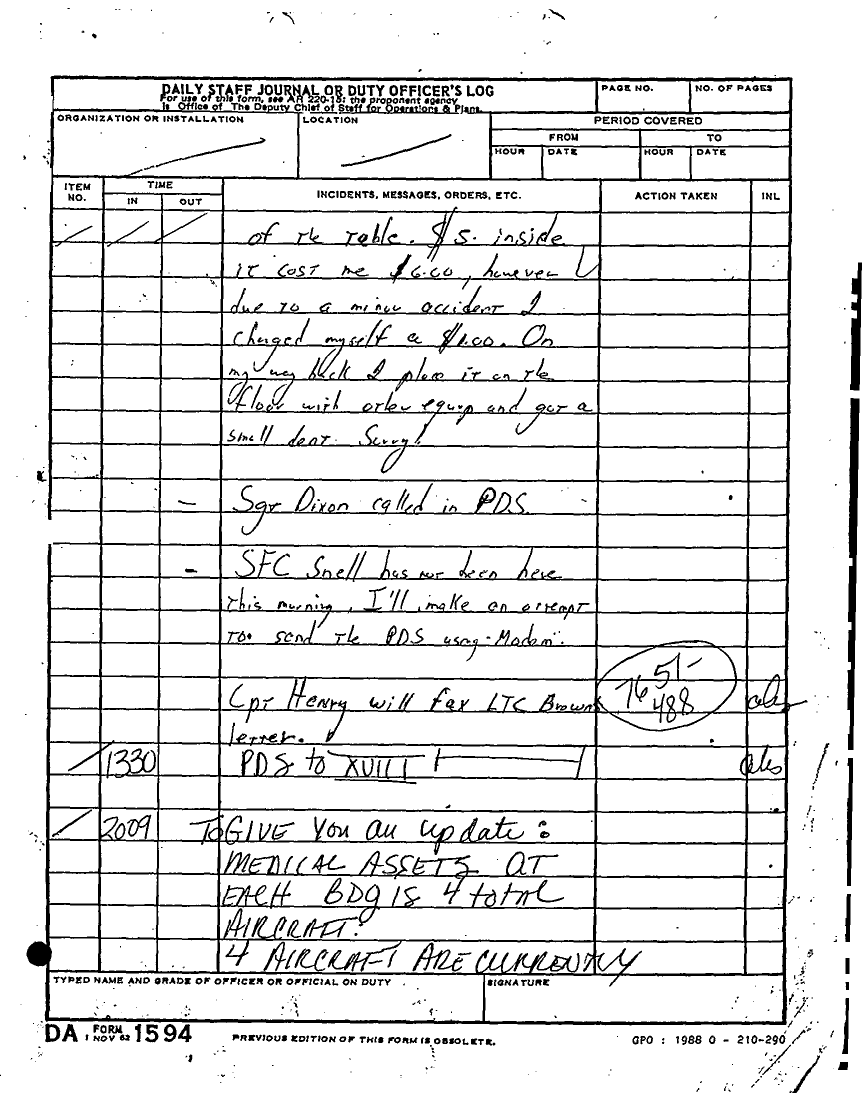 DAILY STAFF JOURNAL OR DUTY OFFICER'S LOG
For use of this form, see AR 220-15; the proponent agency
is Office of The Deputy Chief of Staff for Operations & Plans.
PAGE NO.
NO. OF PAGES
ORGANIZATION OR INSTALLATION
LOCATION
PERIOD COVERED
FROM
TO
HOUR
DATE
HOUR
DATE
ITEM NO.
TIME
IN
OUT
INCIDENTS, MESSAGES, ORDERS, ETC.
ACTION TAKEN
INL
of the table. $5. inside
it cost me $6.00, however
due to a minor accident I
charged myself a $1.00. On
my way back I place it on the
floor with other equip and got a
small dent. Sorry!
- Sgt Dixon called in PDS
- SFC Snell has not been here
this morning, I'll make an attempt
to send the PDS using "Modem".
7651-
488
Cpt Henry will fax LTC Browns
letter.
1330 PDS to XVIII
2009 To GIVE You an update:
MEDICAL ASSETS AT
EACH BDG IS 4 total
AIRCRAFT.
4 AIRCRAFT ARE CURRENTLY
TYPED NAME AND GRADE OF OFFICER OR OFFICIAL ON DUTY
SIGNATURE
DA FORM 1 NOV 62 1594
PREVIOUS EDITION OF THIS FORM IS OBSOLETE.
GPO : 1988 O - 210-290